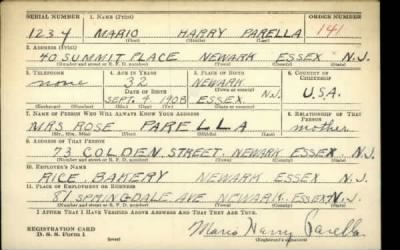 SERIAL NUMBER 1. NAME (Print) ORDER NUMBER
1234 MARIO HARRY PARELLA 141
(First) (Middle) (Last)
2. ADDRESS (Print)
40 SUMMIT PLACE NEWARK ESSEX N.J.
(Number and street or R. F. D. number) (Town) (County) (State)
3. TELEPHONE 4. AGE IN YEARS 5. PLACE OF BIRTH 6. COUNTRY OF CITIZENSHIP
none 32 NEWARK
DATE OF BIRTH (Town or county)
SEPT. 4 1908 ESSEX N.J. U.S.A.
(Exchange) (Number) (Mo.) (Day) (Yr.) (State or country)
7. NAME OF PERSON WHO WILL ALWAYS KNOW YOUR ADDRESS 8. RELATIONSHIP OF THAT PERSON
MRS. ROSE PARELLA mother
(Mr., Mrs., Miss) (First) (Middle) (Last)
9. ADDRESS OF THAT PERSON
73 COLDEN STREET. NEWARK ESSEX N.J.
(Number and street or R. F. D. number) (Town) (County) (State)
10. EMPLOYER'S NAME
RICE BAKERY NEWARK ESSEX N.J.
11. PLACE OF EMPLOYMENT OR BUSINESS
81 SPRINGDALE AVE NEWARK ESSEX N.J.
(Number and street or R. F. D. number) (Town) (County) (State)
I AFFIRM THAT I HAVE VERIFIED ABOVE ANSWERS AND THAT THEY ARE TRUE.
REGISTRATION CARD
D. S. S. Form 1 (over) Mario Harry Parella
(Registrant's signature)